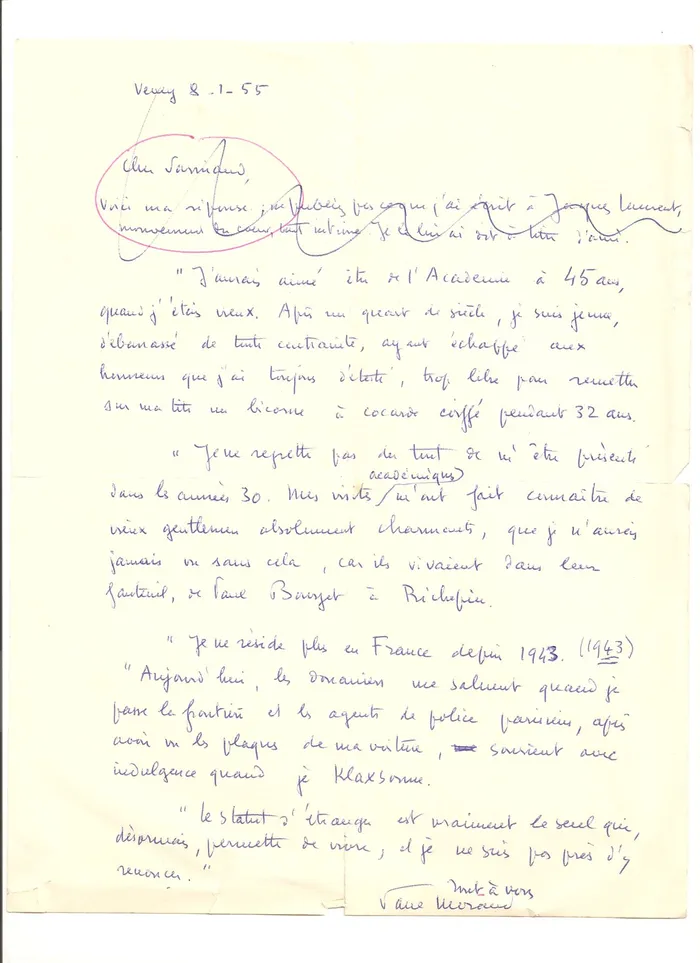 Vevey 8-1-55
Cher Parinaud,
Voici ma réponse ; ne publiez pas ce que j'ai écrit à Jacques Laurent,
mouvement du coeur, tout intime. Je le lui ai dit à titre d'ami.
"J'aurais aimé être de l'Académie à 45 ans,
quand j'étais vieux. Après un quart de siècle, je suis jeune,
débarrassé de toute contrainte, ayant échappé aux
honneurs que j'ai toujours détesté, trop libre pour remettre
sur ma tête un bicorne à cocarde coiffé pendant 32 ans.
"Je ne regrette pas du tout de m'être présenté
dans les années 30. Mes visites académiques m'ont fait connaître de
vieux gentlemen absolument charmants, que je n'aurais
jamais vu sans cela, car ils vivaient dans leur
fauteuil, de Paul Bourget à Richepin.
"Je ne réside plus en France depuis 1943. (1943)
"Aujourd'hui, les douaniers me saluent quand je
passe la frontière et les agents de police parisiens, après
avoir vu les plaques de ma voiture, sourient avec
indulgence quand je klaxonne.
"Le statut d'étranger est vraiment le seul qui,
désormais, permette de vivre ; et je ne suis pas près d'y
renoncer."
Tout à vous
Paul Morand